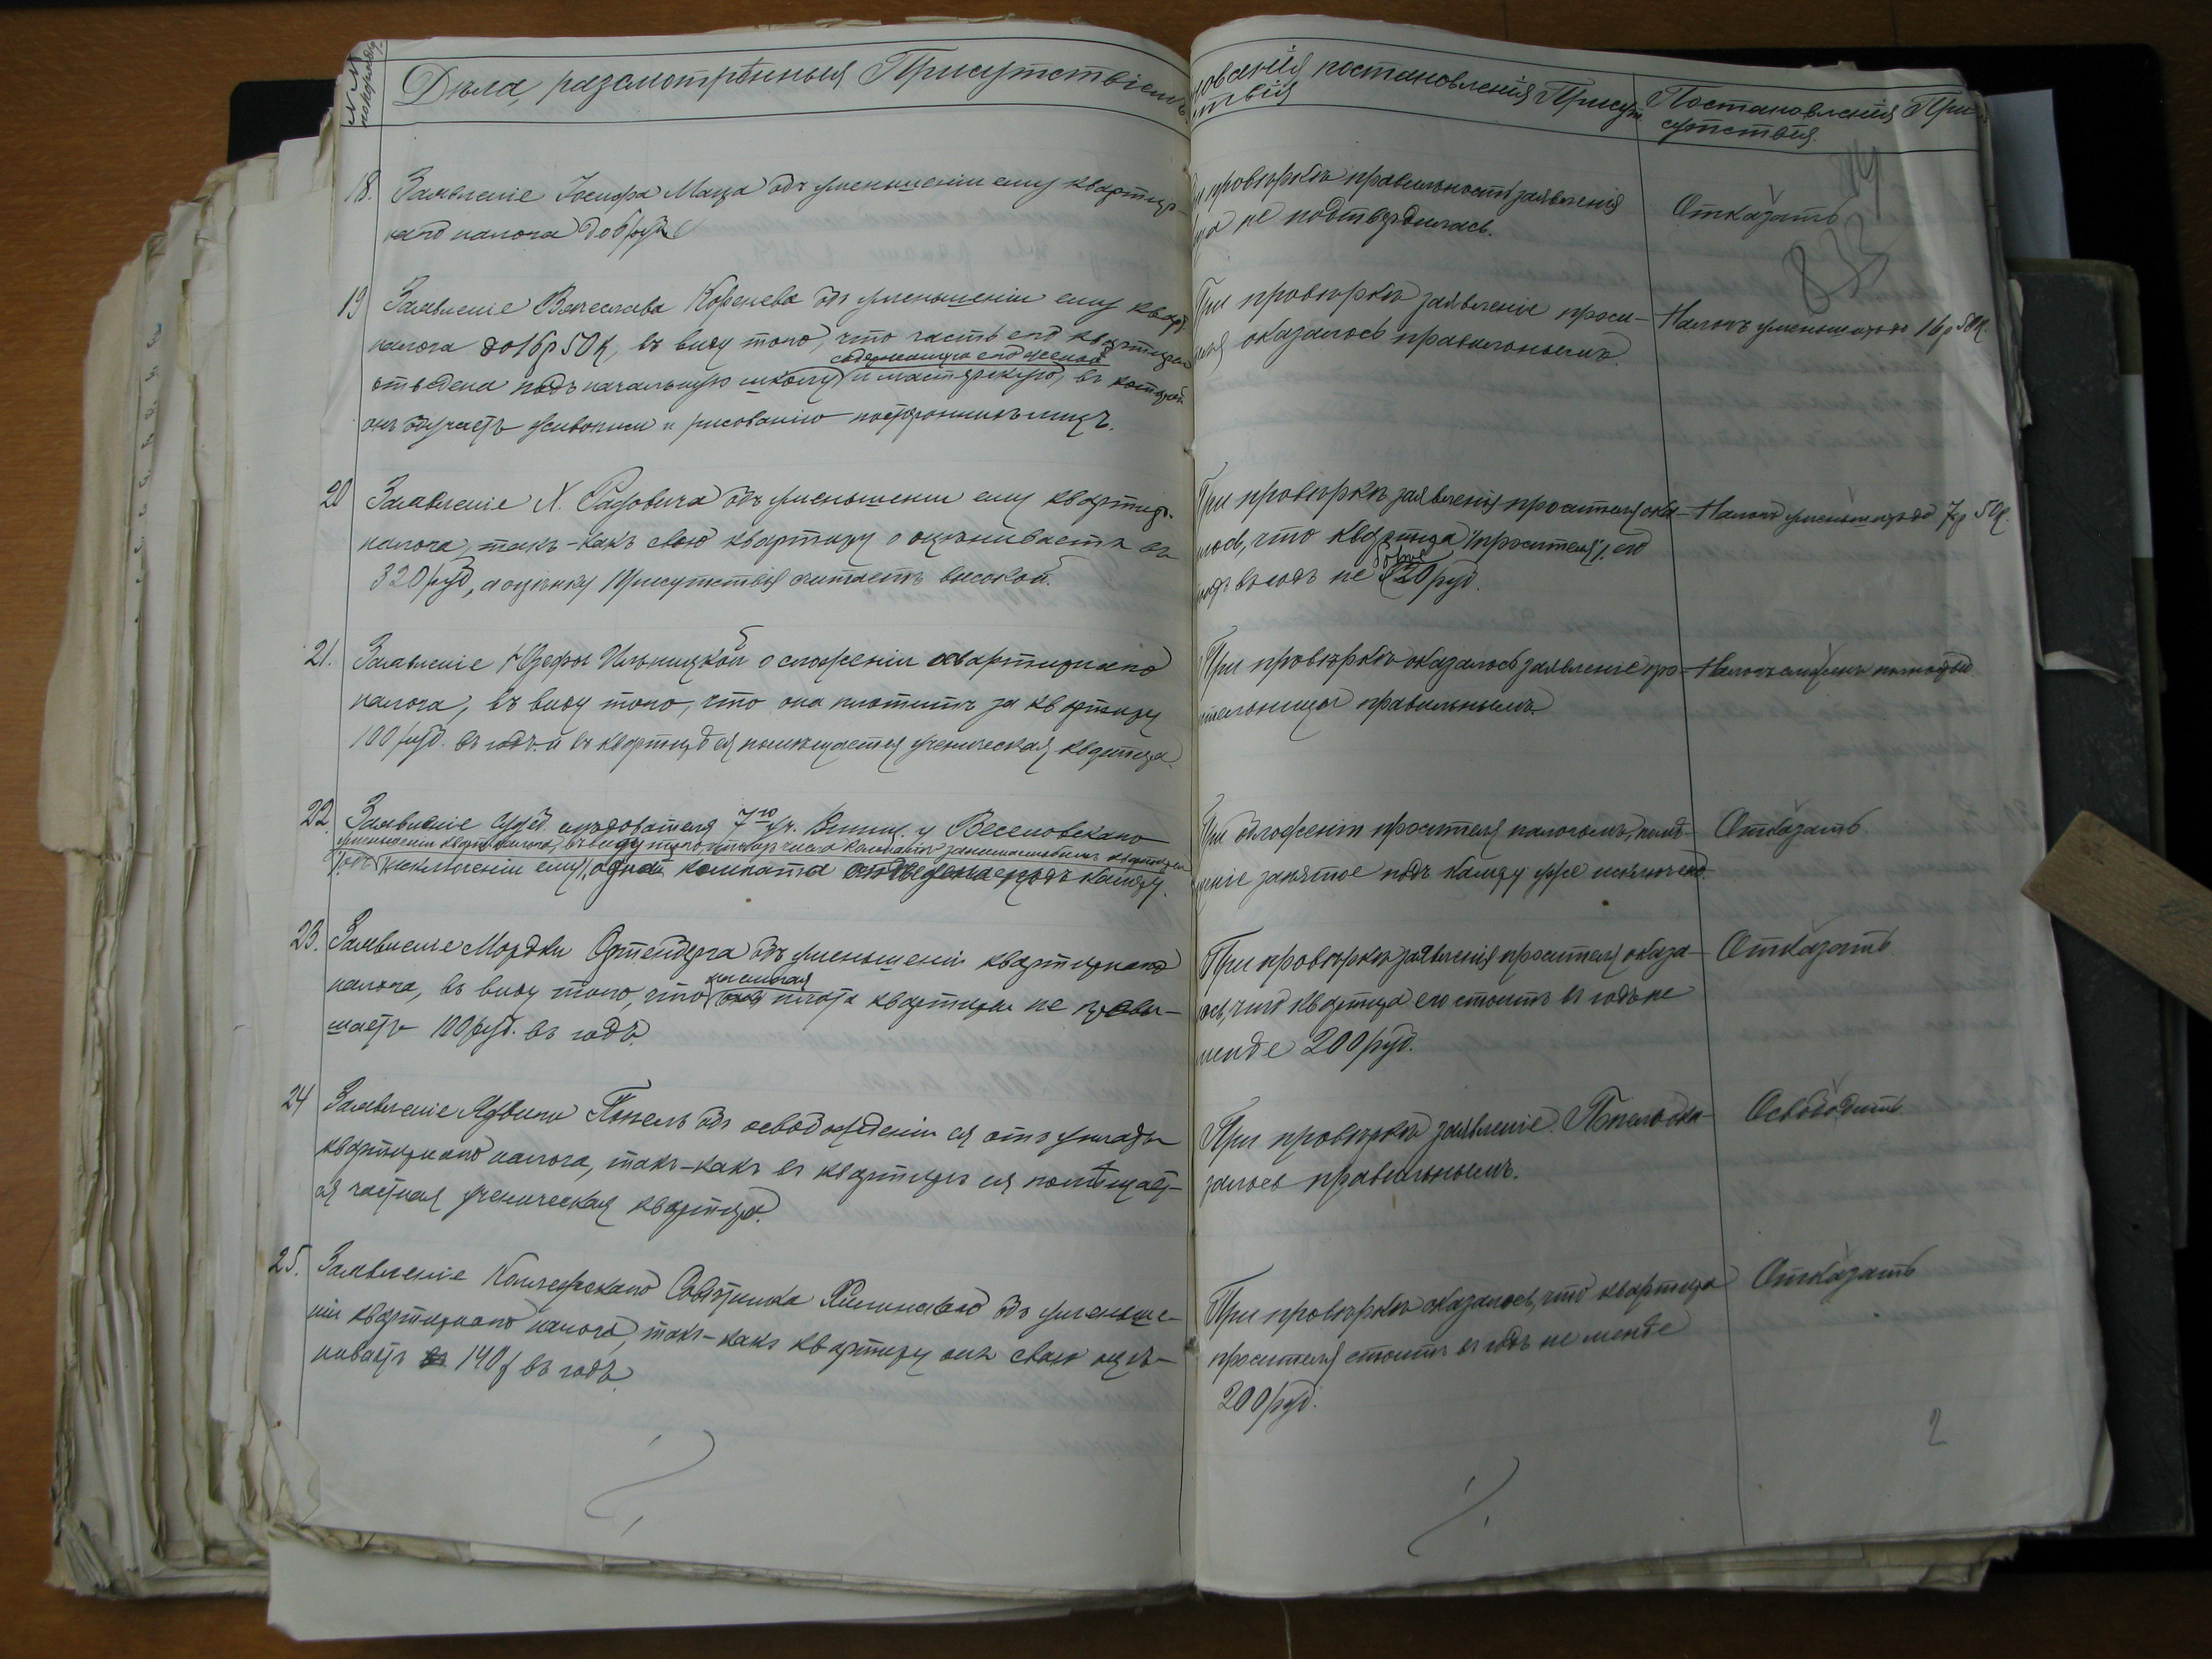 №№ по порядку
Дѣла, разсмотрѣнныя Присутствіемъ
ованія постановленія Присут
ствія
Постановленія При-
сутствія.
833
18.
Заявленіе Іосифа Маца объ уменьшеніи ему квартир-
наго налога до 6 руб.
и провѣркѣ правильность заявленія
ца не подтвердилась.
Отказать
19
Заявленіе Вячеслава Коренева объ уменьшеніи ему кварт.
налога до 16 р 50 к, въ виду того, что часть его квартиры
содержащую его женой
отведена подъ начальную школу и мастерскую, въ которой
онъ обучаетъ живописи и рисованію постороннихъ лицъ.
При провѣркѣ заявленіе проси-
теля оказалось правильнымъ.
Налогъ уменьшить до 16 р 50 к.
20
Заявленіе Х. Садовича объ уменьшеніи ему квартирн.
налога, такъ-какъ свою квартиру оцѣниваетъ въ
320 руб, а оцѣнку Присутствія считаетъ высокой.
При провѣркѣ заявленія просителя ока-
лось, что квартира просителя его
болѣе
въ годъ не 320 руб.
Налогъ уменьшить до 7 р 50 к.
21.
Заявленіе Юзефы Ильницкой о сложеніи квартирнаго
налога, въ виду того, что она платитъ за квартиру
100 руб. въ годъ и въ квартирѣ ея помѣщается ученическая квартира.
При провѣркѣ оказалось заявленіе про-
сительницы правильнымъ.
Налогъ сложить
22.
Заявленіе Суд. слѣдователя 7го уч. Винниц. у Веселовскаго
уменьшеніи кварт. налога, въ виду того, что изъ числа комнатъ занимаемыхъ квартиры
исключеніи ему, одна комната отведена подъ камеру.
При обложеніи просителя налогомъ, помѣ-
щеніе занятое подъ камеру уже исключено.
Отказать.
23.
Заявленіе Мордки Ортенберга объ уменьшеніи квартирнаго
наемная
налога, въ виду того, что плата квартиры не превы-
шаетъ 100 руб. въ годъ.
При провѣркѣ заявленія просителя оказа-
ось, что квартира его стоитъ въ годъ не
менѣе 200 руб.
Отказать.
24
Заявленіе Ядвиги Попель объ освобожденіи ея отъ уплаты
квартирнаго налога, такъ-какъ въ квартирѣ ея помѣщает-
ся частная ученическая квартира.
При провѣркѣ заявленіе Попель ока-
залось правильнымъ.
Освободить.
25.
Заявленіе Коллежскаго Совѣтника Хилинскаго объ уменьше-
ніи квартирнаго налога, такъ-какъ квартиру онъ свою оцѣ-
ниваетъ 140 р въ годъ.
При провѣркѣ оказалось, что квартира
просителя стоитъ въ годъ не менѣе
200 руб.
Отказать
2